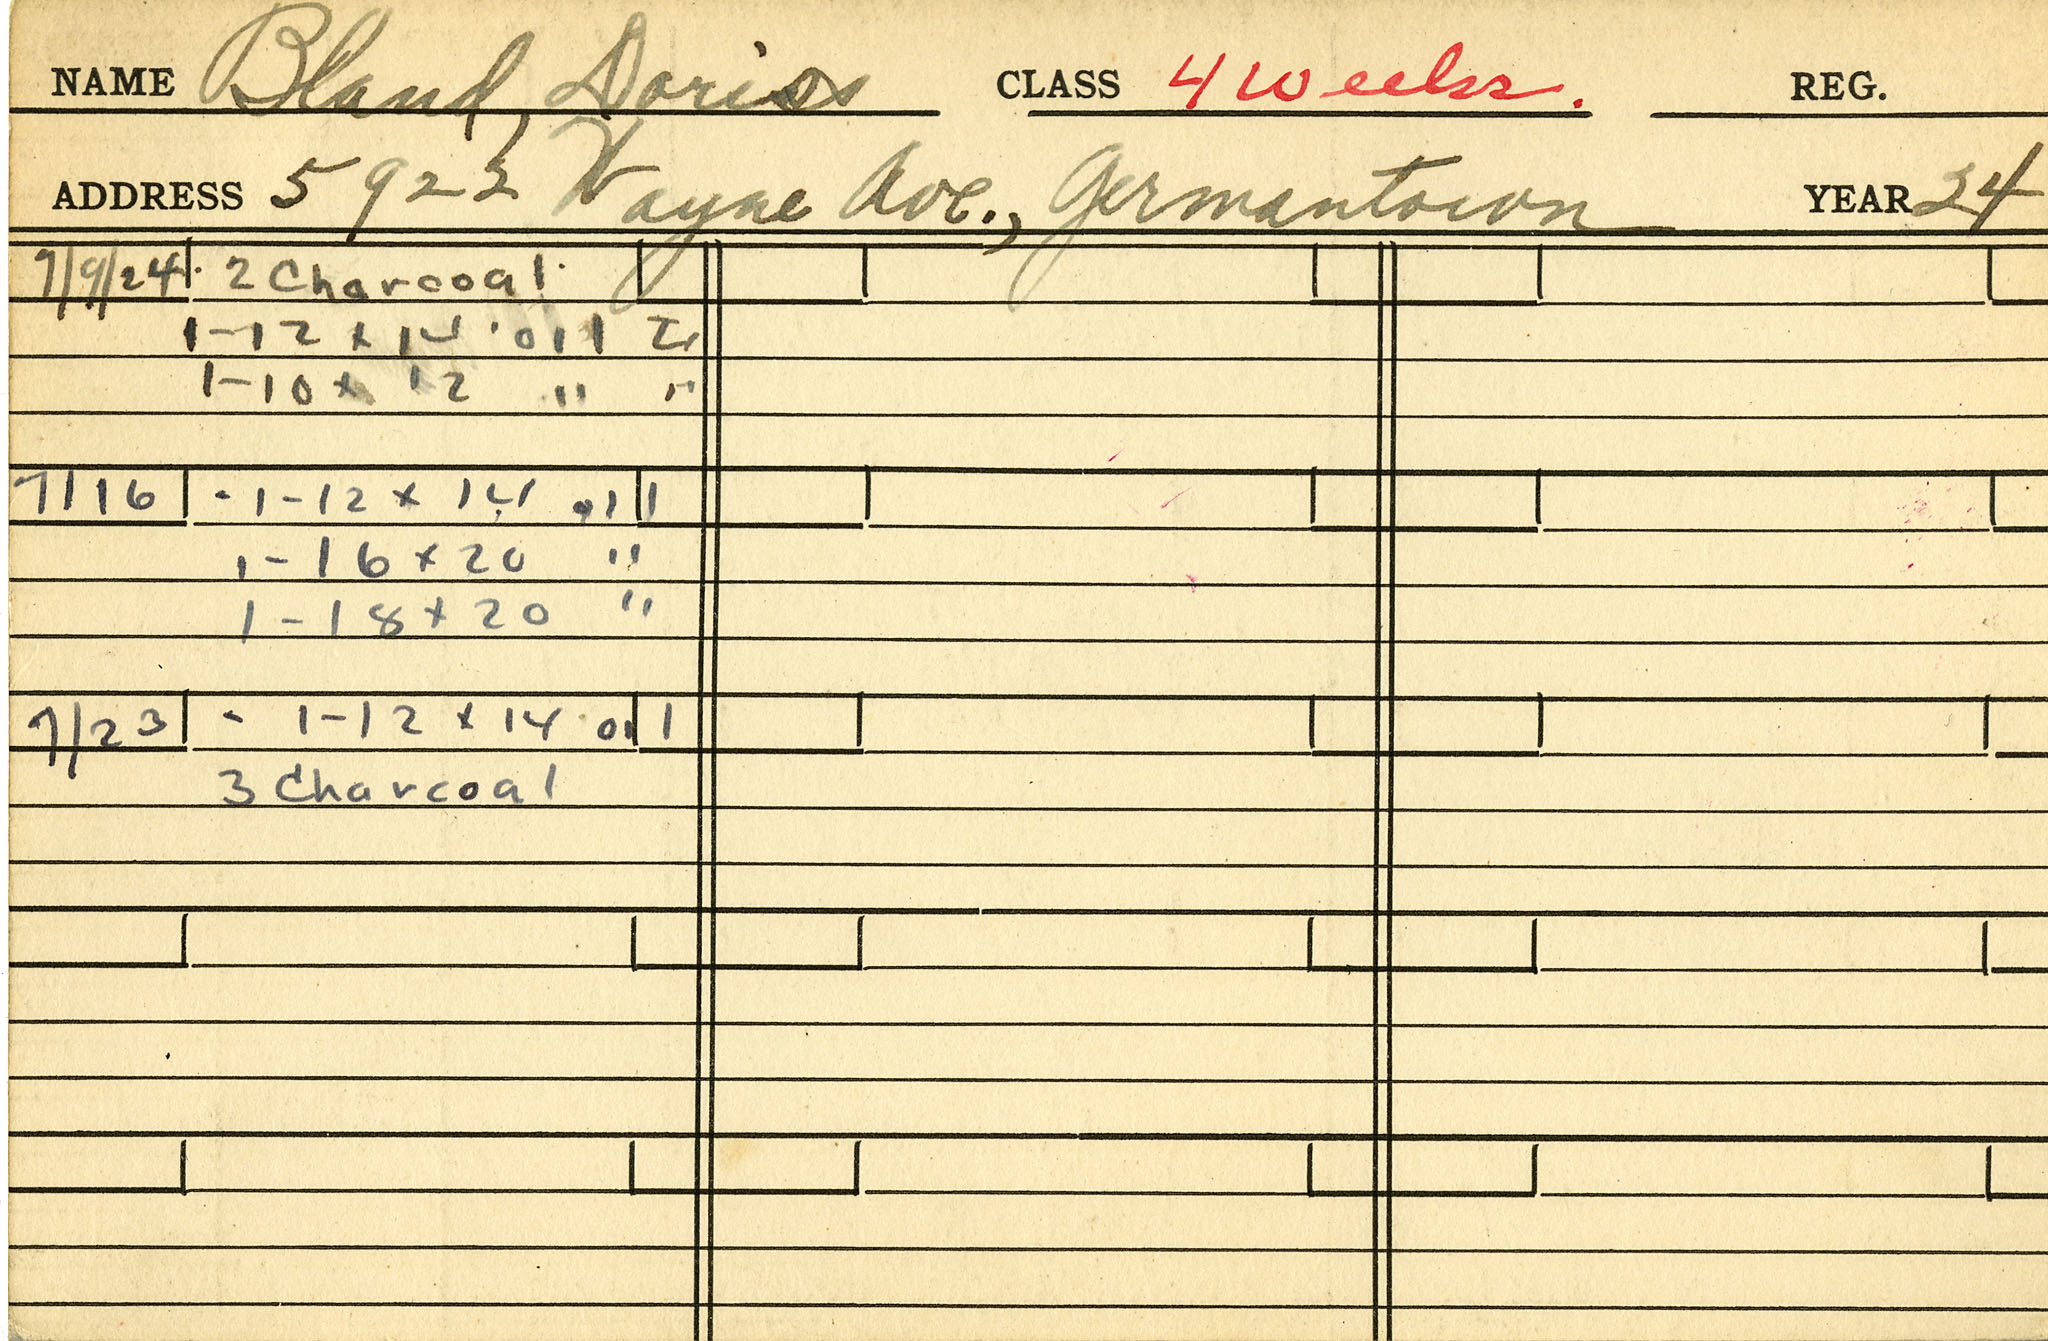 NAME Bland, Doriss CLASS 4 Weeks. REG.
ADDRESS 5923 Wayne Ave., Germantown YEAR 24
7/9/24 · 2 Charcoal
1-12 x 14 oil
1-10 x 12 " "
7/16 - 1-12 x 14 oil
1-16 x 20 "
1-18 x 20 "
7/23 - 1-12 x 14 oil
3 Charcoal